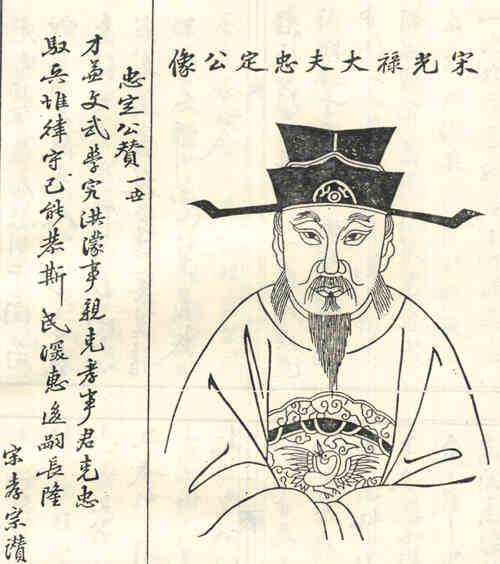 宋光禄大夫忠定公像
忠定公賛 一世
才兼文武學究洪濛事親克孝事君克忠
馭兵惟律守己能恭斯民惠嗣長隆
宋孝宗讚